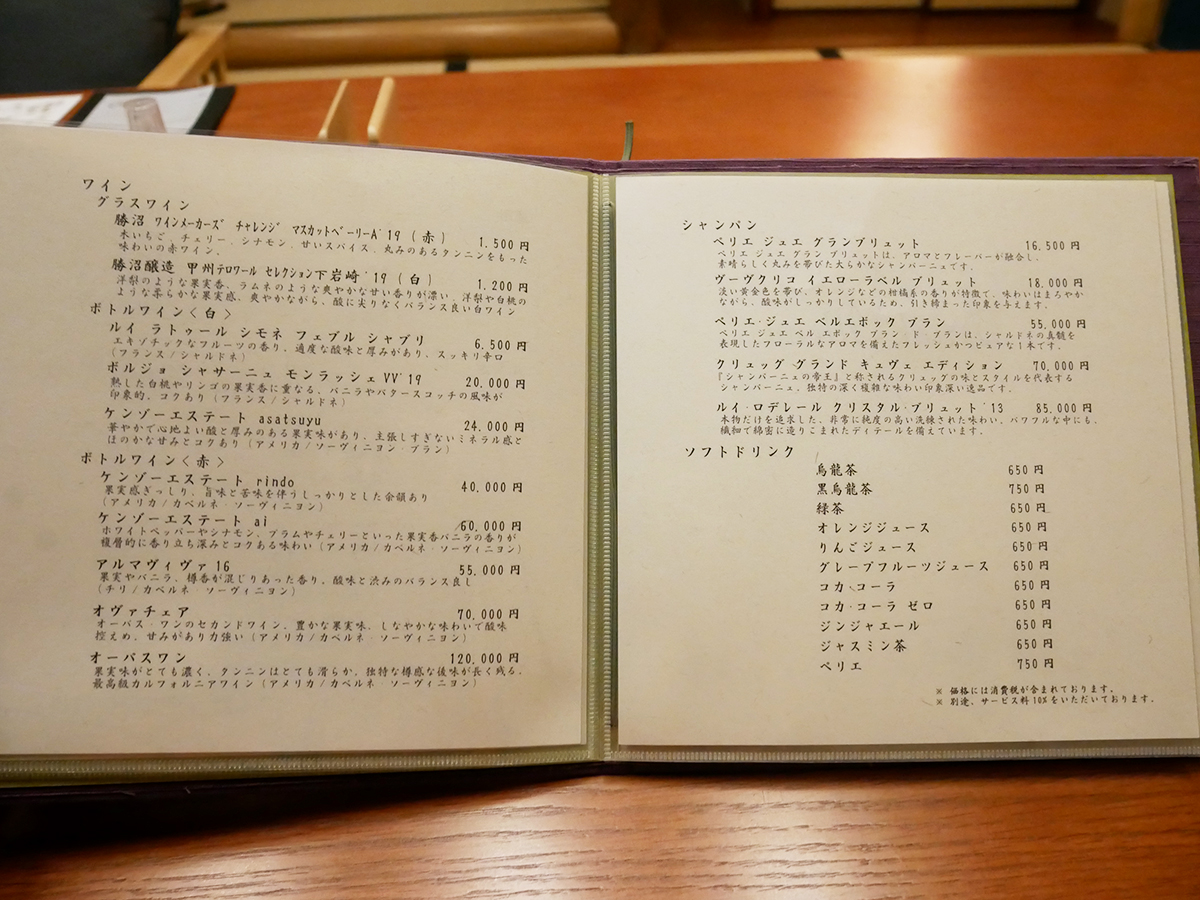 ワイン
グラスワイン
勝沼 ワインメーカーズ チャレンジ マスカットベーリーA'19 (赤) 1.500円
木いちご、チェリー、シナモン、甘いスパイス、丸みのあるタンニンをもった
味わいの赤ワイン、
勝沼醸造 甲州テロワール セレクション下岩崎'19 (白) 1.200円
洋梨のような果実香、ラムネのような爽やかな甘い香りが漂い、洋梨や白桃の
ような柔らかな果実感、爽やかながら、酸に尖りなくバランス良い白ワイン
ボトルワイン〈白〉
ルイ ラトゥール シモネ フェブル シャブリ 6.500円
エキゾチックなフルーツの香り、適度な酸味と厚みがあり、スッキリ辛口
(フランス/シャルドネ)
ボルジョ シャサーニュ モンラッシェVV'19 20.000円
熟した白桃やリンゴの果実香に重なる、バニラやバタースコッチの風味が
印象的、コクあり (フランス/シャルドネ)
ケンゾーエステート asatsuyu 24.000円
華やかで心地よい酸と厚みのある果実味があり、主張しすぎないミネラル感と
ほのかな甘みとコクあり (アメリカ/ソーヴィニヨン・ブラン)
ボトルワイン〈赤〉
ケンゾーエステート rindo 40.000円
果実感ぎっしり、旨味と苦味を伴うしっかりとした余韻あり
(アメリカ/カベルネ・ソーヴィニヨン)
ケンゾーエステート ai 60.000円
ホワイトペッパーやシナモン、プラムやチェリーといった果実香バニラの香りが
複層的に香り立ち深みとコクある味わい (アメリカ/カベルネ・ソーヴィニヨン)
アルマヴィヴァ16 55.000円
果実やバニラ、樽香が混じりあった香り、酸味と渋みのバランス良し
(チリ/カベルネ・ソーヴィニヨン)
オヴァチェア 70.000円
オーパス・ワンのセカンドワイン、豊かな果実味、しなやかな味わいで酸味
控えめ、甘みがあり力強い (アメリカ/カベルネ・ソーヴィニヨン)
オーパスワン 120.000円
果実味がとても濃く、タンニンはとても滑らか、独特な樽感な後味が長く残る、
最高級カルフォルニアワイン (アメリカ/カベルネ・ソーヴィニヨン)
シャンパン
ペリエ ジュエ グランブリュット 16.500円
ペリエ ジュエ グラン ブリュットは、アロマとフレーバーが融合し、
素晴らしく丸みを帯びた大らかなシャンパーニュです。
ヴーヴクリコ イエローラベル ブリュット 18.000円
淡い黄金色を帯び、オレンジなどの柑橘系の香りが特徴で、味わいはまろやか
ながら、酸味がしっかりしているため、引き締まった印象を与えます。
ペリエ・ジュエ ベルエポック ブラン 55.000円
ペリエ ジュエ ベル エポック ブラン・ド・ブランは、シャルドネの真髄を
表現したフローラルなアロマを備えたフレッシュかつピュアな1本です。
クリュッグ グランド キュヴェ エディション 70.000円
『シャンパーニュの帝王』と称されるクリュッグの味とスタイルを代表する
シャンパーニュ、独特の深く複雑な味わい印象深い逸品です。
ルイ・ロデレール クリスタル・ブリュット'13 85.000円
本物だけを追求した、非常に純度の高い洗練された味わい、パワフルな中にも、
繊細で綿密に造りこまれたディテールを備えています。
ソフトドリンク
烏龍茶 650円
黒烏龍茶 750円
緑茶 650円
オレンジジュース 650円
りんごジュース 650円
グレープフルーツジュース 650円
コカ・コーラ 650円
コカ・コーラ ゼロ 650円
ジンジャエール 650円
ジャスミン茶 650円
ペリエ 750円
※ 価格には消費税が含まれております。
※ 別途、サービス料10%をいただいております。